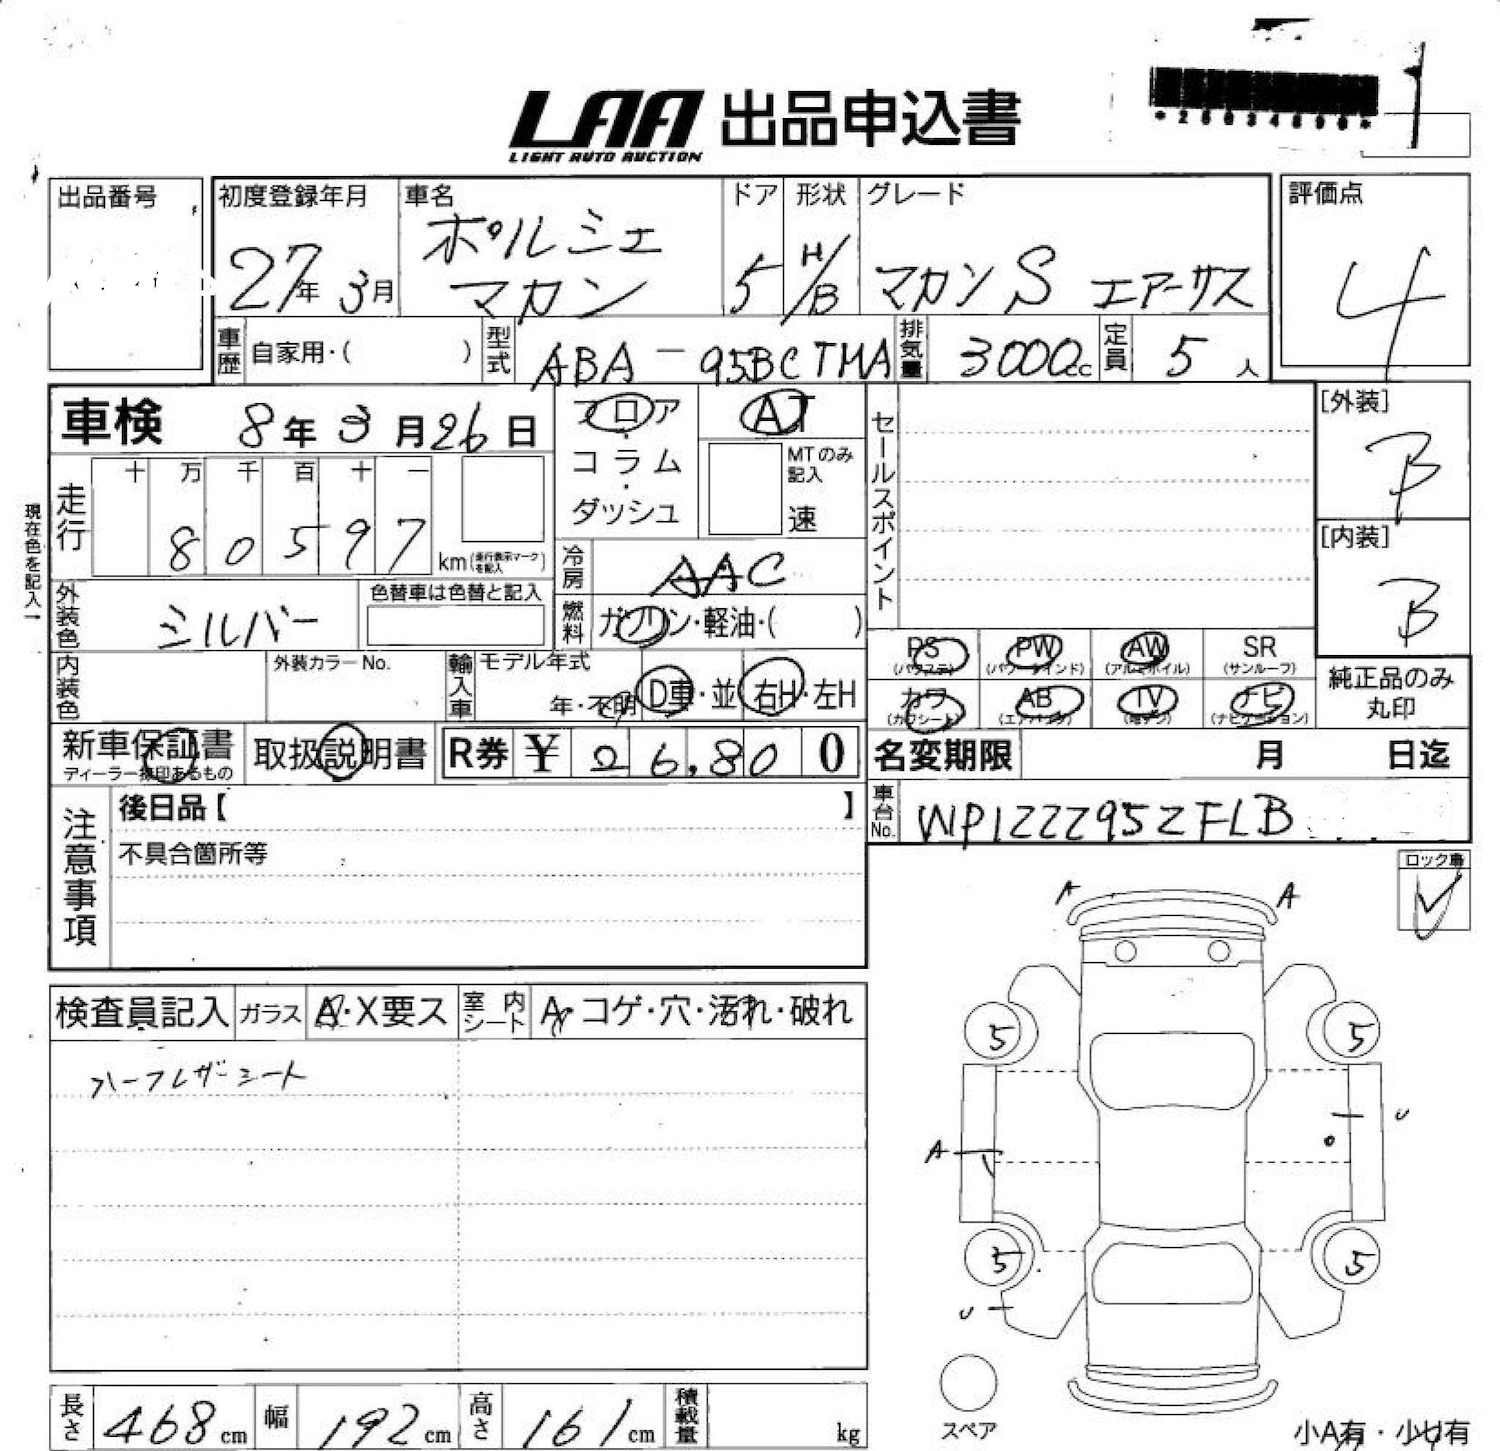 LAA 出品申込書
LIGHT AUTO AUCTION
出品番号
初度登録年月 車名 ドア 形状 グレード 評価点
27年 3月 ポルシェ マカン 5 H/B マカン S エアーサス 4
車歴 自家用・( ) 型式 ABA-95BCTMA 排気量 3000cc 定員 5人
車検 8年3月26日
フロア・コラム・ダッシュ
AT
MTのみ記入
速
セールスポイント
[外装]
B
[内装]
B
現在色を記入→
走行 十 万 千 百 十 一
8 0 5 9 7
km(走行表示マークを記入)
冷房 AAC
外装色 シルバー 色替車は色替と記入
燃料 ガソリン・軽油・( )
PS (パワステ) PW (パワーウインド) AW (アルミホイル) SR (サンルーフ)
カワ (カワシート) AB (エアバッグ) TV ナビ (ナビゲーション)
純正品のみ丸印
内装色 外装カラーNo. 輸入車 モデル年式 年・不明 D車・並 右H・左H
新車保証書 取扱説明書 R券 ¥ 26,800
ディーラー捺印あるもの
名変期限 月 日迄
車台No. WP1ZZZ95ZFLB
注意事項
後日品【 】
不具合箇所等
ロック車
A A
5 5
A U
5 5
U
スペア
小A有・小U有
検査員記入 ガラス A・X要ス 室内シート A・コゲ・穴・汚れ・破れ
ハーフレザーシート
長さ 468cm 幅 192cm 高さ 161cm 積載量 kg